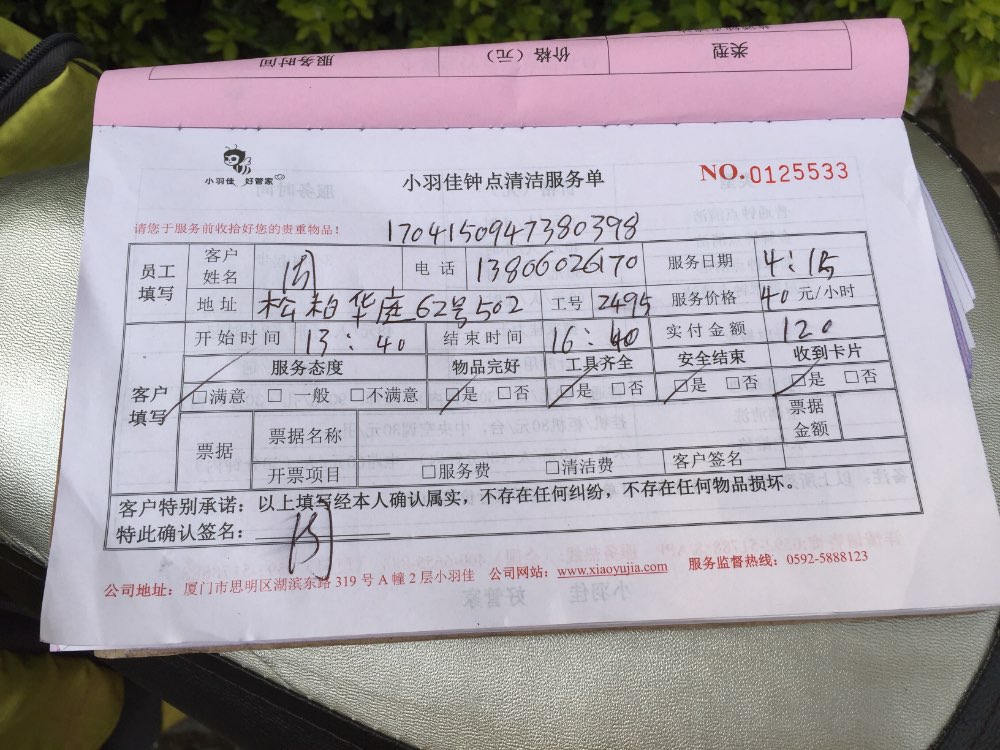 类型 价格（元） 服务时间
小羽佳 好管家
小羽佳钟点清洁服务单
NO.0125533
请您于服务前收拾好您的贵重物品！
1704150947380398
员工填写 客户姓名 周 电话 13806026170 服务日期 4:15
地址 松柏华庭62号502 工号 2495 服务价格 40元/小时
开始时间 13:40 结束时间 16:40 实付金额 120
客户填写 服务态度 物品完好 工具齐全 安全结束 收到卡片
□满意 □一般 □不满意 □是 □否 □是 □否 □是 □否 □是 □否
票据 票据名称 票据金额
开票项目 □服务费 □清洁费 客户签名
客户特别承诺：以上填写经本人确认属实，不存在任何纠纷，不存在任何物品损坏。
特此确认签名： 周
公司地址：厦门市思明区湖滨东路319号A幢2层小羽佳 公司网站：www.xiaoyujia.com 服务监督热线：0592-5888123